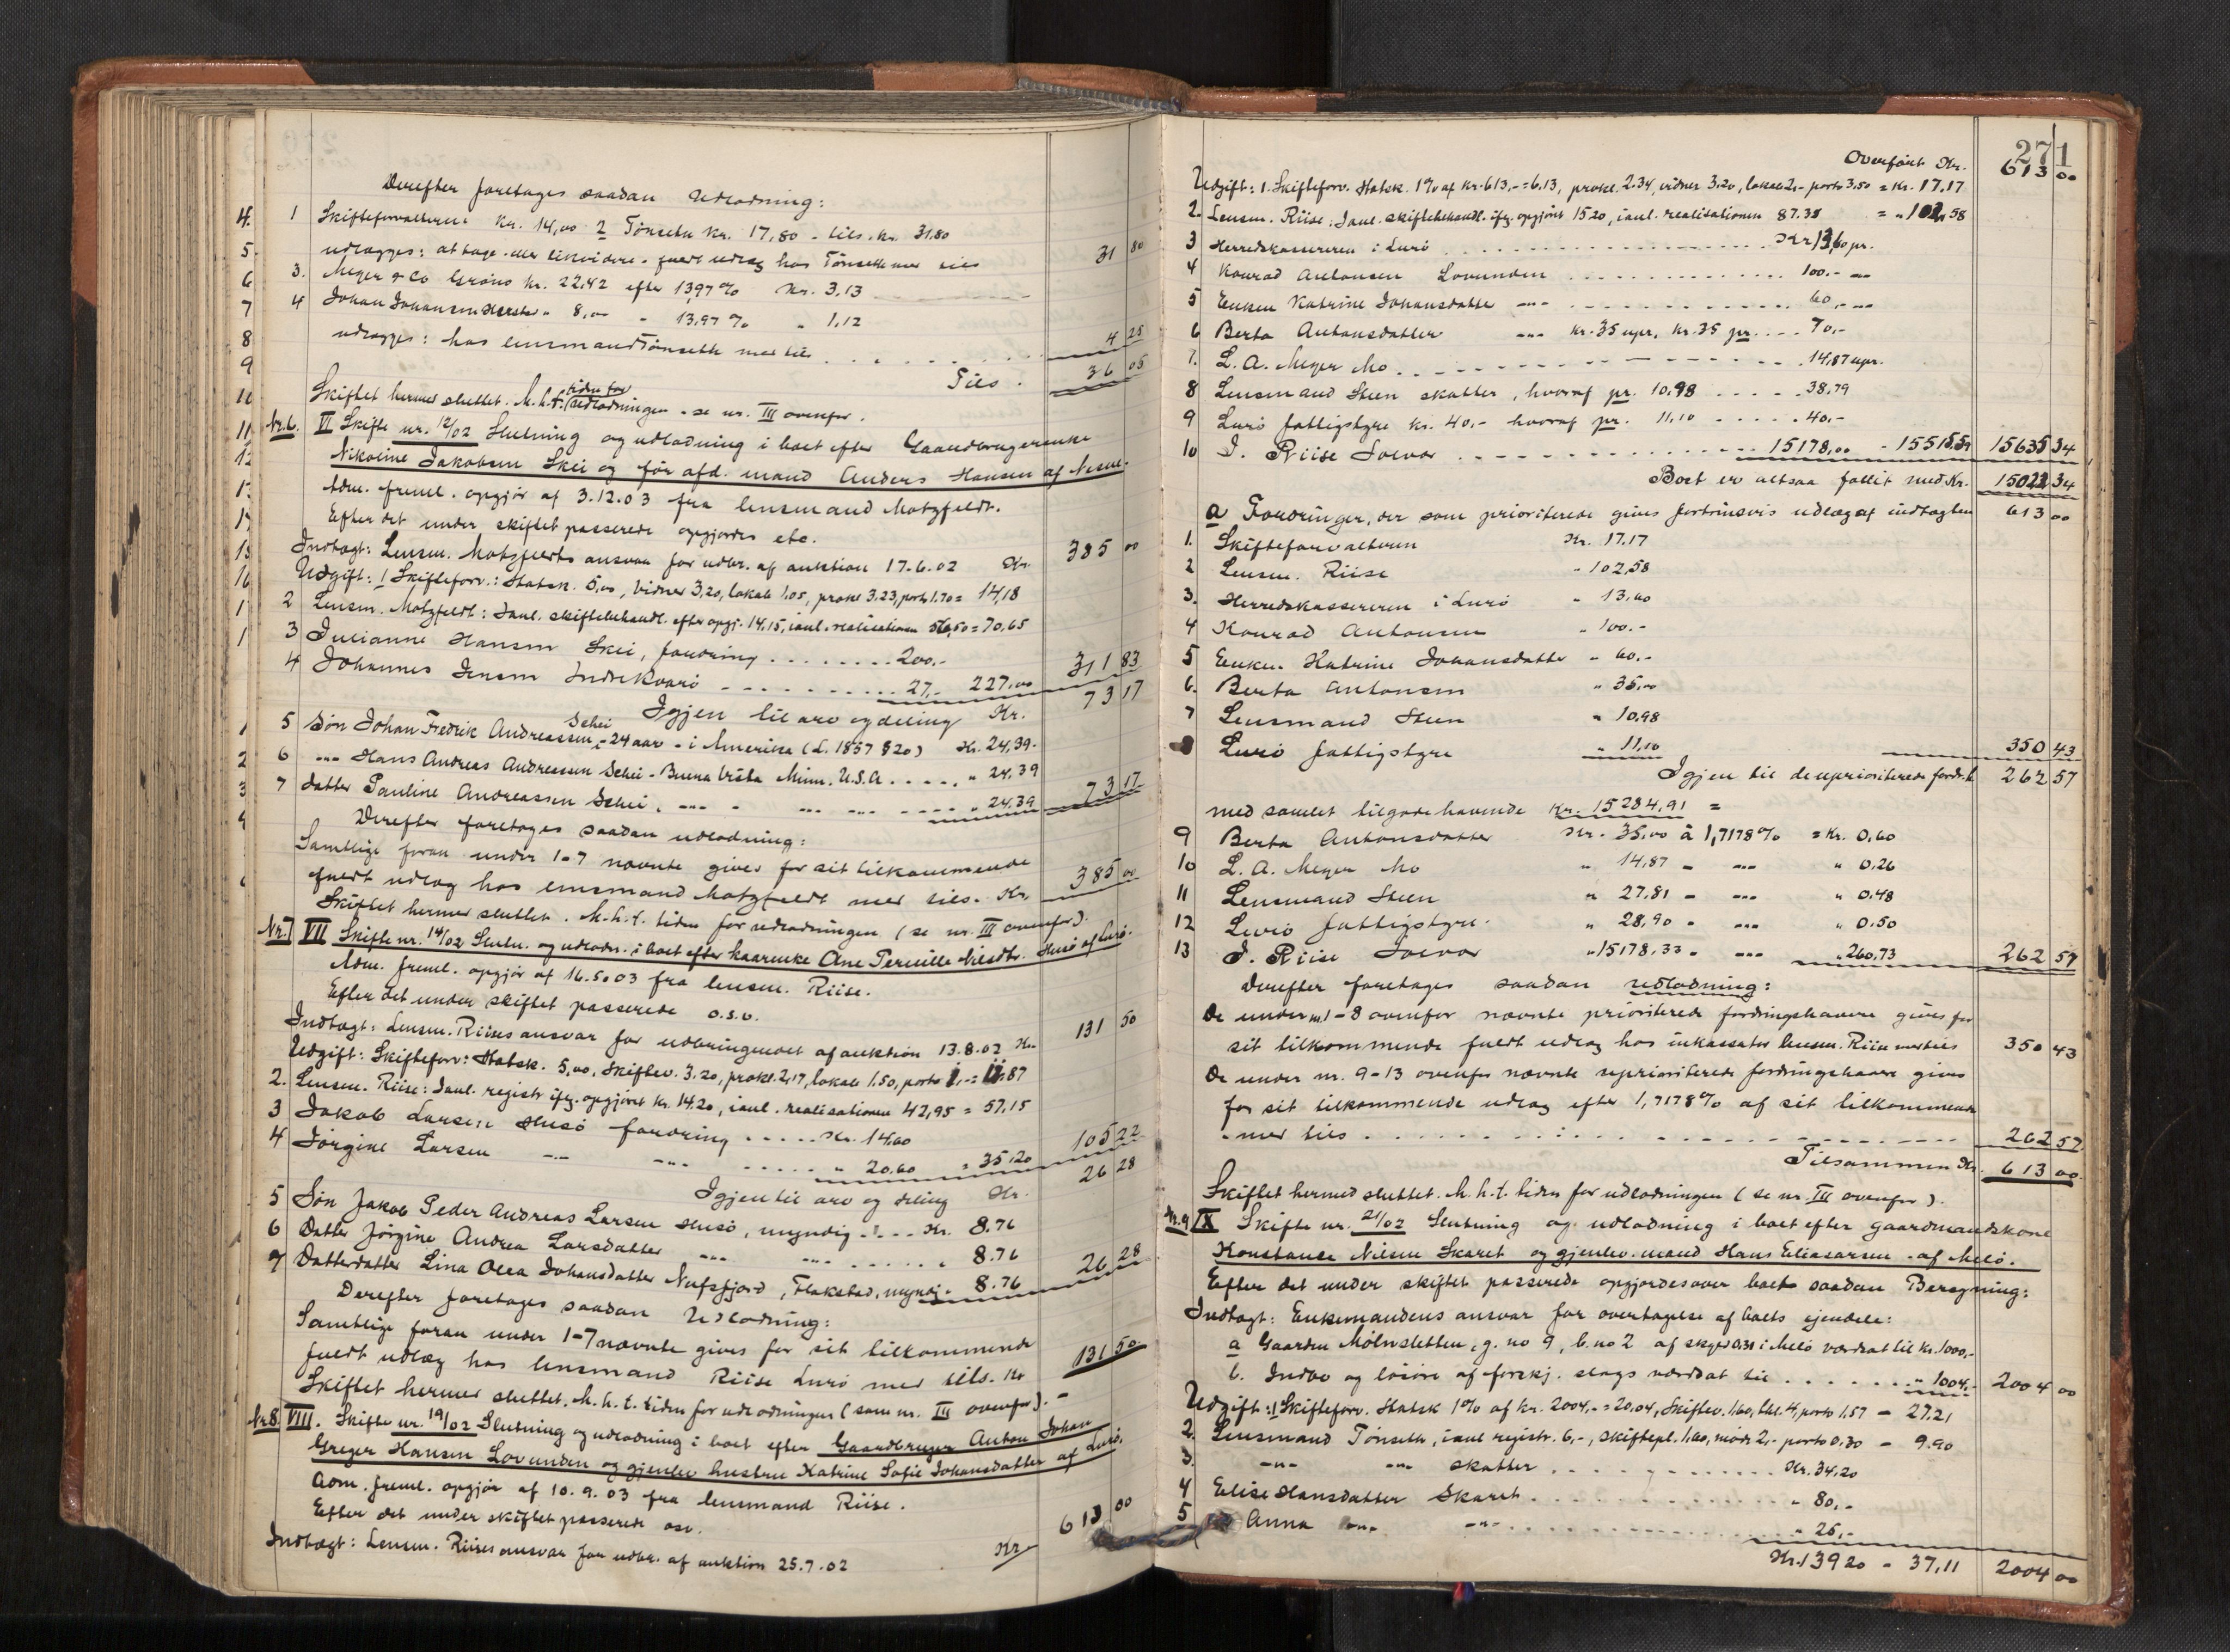 Derefter foretages saadan Udlodning:
1 Skifteforvalteren kr. 14,00 2 Tønseth kr. 17,80 - tils. kr. 31.80
udlægges: at tage eller likvidere. fuldt udlæg hos Tønseth med tils 31 80
3. Meyer & Co Grøno kr. 22,42 efter 13,97 % kr. 3,13
4 Johan Johansen " 8,00 " 13,97 % " 1,12
udlægges: hos lensmand Tønseth med tils . . . . 4 25
Tils. 36 05
Skiftet hermed sluttet. M.h.t. tiden for udlodningen - se nr. III ovenfor.
Nr. 6. VI Skifte nr. 12/02 Slutning og udlodning i boet efter Gaardbrugerenke
Nikoline Jakobsen Skei og før afd. mand Anders Hansen af Nesne.
Adm. freml. opgjør af 3.12.03 fra lensmand Motzfeldt.
Efter det under skiftet passerede opgjordes etc.
Indtægt: Lensm. Motzfeldts ansvar for udbr. af auktion 17.6.02 Kr. 385 00
Udgift: 1 Skifteforv.: Statsk. 5,00, vidner 3,20, lokale 1.05, prokl 3.23, porto 1.70 = 14,18
2 Lensm. Motzfeldt: Janl. skiftebehandl. efter opgj. 14,15, ianl. realisationen 56,50 = 70,65
3 Julianne Hansen Skei, fordring . . . . . . . . 200.-
4 Johannes Jensen Indre Kvarø - - - - - - 27.- 227.00 311 83
Igjen til arv og deling Kr. 73 17
5 Søn Johan Fredrik Andreassen Schei - 24 aar - i Amerika (L. 1857 § 20) Kr. 24,39.
6 -"- Hans Andreas Andreassen Schei - Buena Vista Minn. U.S.A. . . . . " 24,39
7 Datter Pauline Andreassen Schei, -"- - -"- -"- - - - - " 24,39 73 17
Derefter foretages saadan udlodning:
Samtlige foran under 1-7 nævnte gives for sit tilkommende
fuldt udlæg hos lensmand Motzfeldt med tils. Kr. 385 00
Skiftet hermed sluttet. M.h.t. tiden for udlodningen (se nr. III ovenfor).
Nr. 7 VII Skifte nr. 14/02 Slutn. og udlodn. i boet efter kaarenke Ane Pernille Nilsdtr. Husø af Lurø.
Adm. freml. opgjør af 16.5.03 fra lensm. Riise.
Efter det under skiftet passerede o.s.v.
Indtægt: Lensm. Riises ansvar for udbringendet af auktion 13.8.02 Kr. 131 50
Udgift: Skifteforv: Statsk. 5,00, Skiftev. 3.20, prokl. 2,17, lokale 1.50, porto
2. Lensm. Riise: Janl. registr ifg. opgjøret kr. 14.20, ianl. realisationen 42,95 = 57,15
3 Jakob Larsen Husø fordring . . . . . Kr. 14.60
4 Jørgine Larsen -"- -"- . . . . . " 20.60 = 35.20 105 22
Igjen til arv og deling Kr. 26 28
5 Søn Jakob Peder Andreas Larsen Husø, myndig . . . . . Kr. 8.76
6 Datter Jørgine Andrea Larsdatter -"- -"- . . . . . . 8.76
7 Datterdatter Lina Olea Johansdatter Nufsfjord, Flakstad, myndig. 8.76 26 28
Derefter foretages saadan Udlodning:
Samtlige foran under 1-7 nævnte gives for sit tilkommende
fuldt udlæg hos lensmand Riise Lurø med tils. Kr 131 50
Skiftet hermed sluttet. M.h.t. tiden for udlodningen (som nr. III ovenfor). -
Nr. 8 VIII. Skifte nr. 19/02 Slutning og udlodning i boet efter Gaardbruger Anton Johan
Greger Hansen Lovunden og gjenlev hustru Katrine Sofie Johansdatter af Lurø.
Adm. freml. opgjør af 10.9.03 fra lensmand Riise.
Efter det under skiftet passerede osv.
Indtægt: Lensm. Riises ansvar for udbr. af auktion 25.7.02 Kr. 613 00
271
Overført Kr. 613 00
Udgift: 1. Skifteforv. Statsk. 1% af kr. 613,- = 6.13, prokl. 2.34, vidner 3.20, lokale 2.- porto 3.50 = Kr. 17,17
2. Lensm. Riise: Janl. skiftebehandl. ifg. opgjøret 15.20, ianl. realisationen 87.38 = " 102,58
3 Herredskassereren i Lurø . . . . . . . Kr 13,60 pr.
4 Konrad Antonsen Lovunden . . . . . . . 100.- -"-
5 Enken Katrine Johansdatter -"- . . . . . . . 60,- -"-
6 Berta Antonsdatter -"- kr. 35 upr, kr. 35 pr. . . . . 70,-
7. L. A. Meyer Mo . . . . . . 14,87 upr.
8 Lensmand Steen skatter, hvoraf pr. 10,98 . . . . . 38,79
9 Lurø fattigstyre kr. 40,- hvoraf pr. 11,10 . . . . . 40,-
10 J. Riise Solvær . . . . . . 15178,00 - 15515.59 15635 34
Boet er altsaa fallit med Kr. 15022 34
a Fordringer, der som prioriterede gives fortrinsvis udlæg af indtægten 613 00
1. Skifteforvalteren Kr. 17.17
2 Lensm. Riise " 102,58
3. Herredskassereren i Lurø " 13,60
4 Konrad Antonsen " 100.-
5 Enken Katrine Johansdatter " 60.-
6. Berta Antonsen " 35,00
7 Lensmand Steen " 10,98
8 Lurø fattigstyre " 11,10 350 43
Igjen til de uprioriterede fordr.h. 262 57
med samlet tilgodehavende kr. 15284,91 =
9 Berta Antonsdatter Kr. 35,00 à 1,7178 % = Kr. 0,60
10 L. A. Meyer Mo " 14,87 - -"- " 0,26
11 Lensmand Steen " 27,81 - -"- " 0,48
12 Lurø fattigstyre. " 28,90 - -"- " 0,50
13 J. Riise Solvær " 15178,33 - -"- " 260,73 262 57
Derefter foretages saadan udlodning:
De under nr. 1-8 ovenfor nævnte prioriterede fordringshavere gives for
sit tilkommende fuldt udlæg hos inkassator lensm. Riise med tils 350 43
De under nr. 9-13 ovenfor nævnte uprioriterede fordringshavere gives
for sit tilkommende udlæg efter 1,7178 % af sit tilkommende
- med tils . . . . . . . . 262 57
Tilsammen Kr. 613 00
Skiftet hermed sluttet. M.h.t. tiden for udlodningen (se nr. III ovenfor).
Nr. 9 IX Skifte nr. 21/02 Slutning og udlodning i boet efter gaardmandskone
Konstance Nilsen Skaret og gjenlev. mand Hans Eliasarsen af Melø.
Efter det under skiftet passerede opgjordes over boet saadan Beregning:
Indtægt: Enkemandens ansvar for overtagelse af boets ejendele:
a Gaarden Mølnsletten, g. no 9, b. no 2 af skyld 0.31 i Melø værdsat til kr. 1000,-
b. Indbo og løsøre af forskj. slags værdsat til . . . . . . " 1004.- 2004 00
Udgift: 1 Skifteforv. Statsk 1% af kr. 2004,- = 20,04, Skiftev. 1,60, lkl. 4, porto 1.57 - 27.21
2. Lensmand Tønseth, ianl registr. 6,-, skiftepl. 1.60, møde 2,- porto 0,30 - 9.90
3. -"- -"- skatter . . . . . . . Kr. 34,20
4 Elise Hansdatter Skaret . . . . . . . " 80,-
5 Anna -"- -"- . . . . . . . " 25,-
Kr. 139 20 - 37,11 2004 00